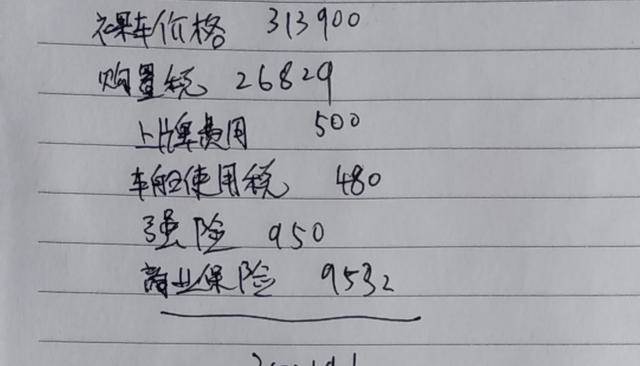 裸车价格 313900
购置税 26829
上牌费用 500
车船使用税 480
强险 950
商业保险 9532